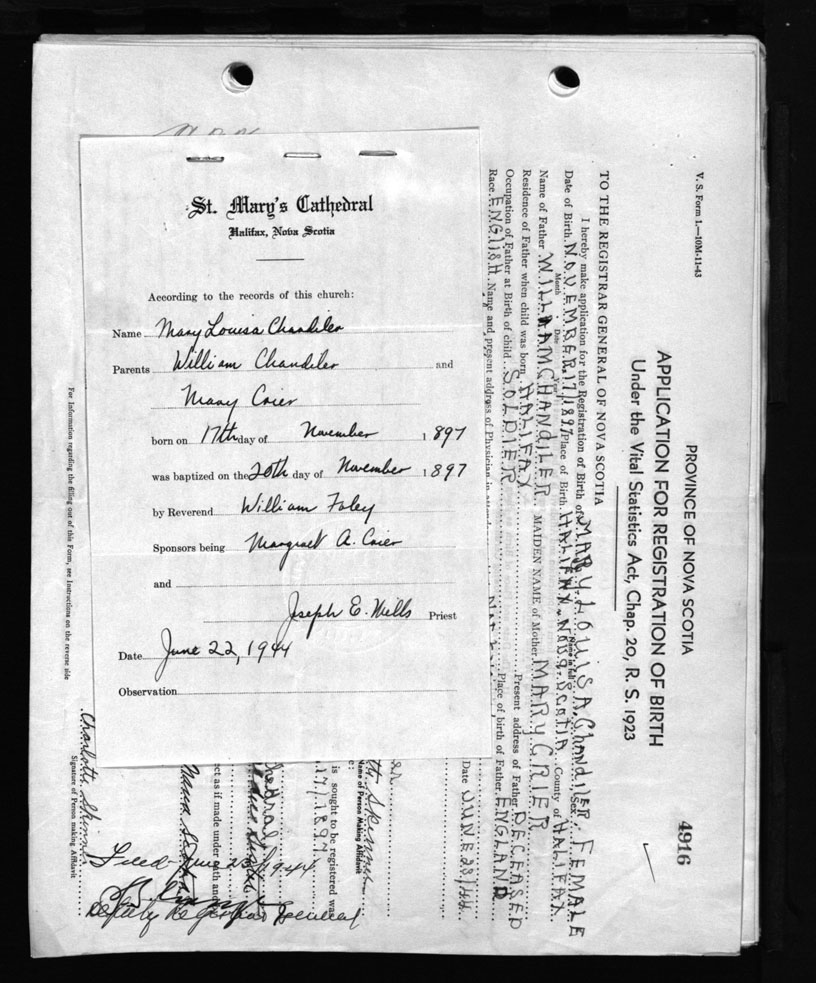 St. Mary's Cathedral
Halifax, Nova Scotia
According to the records of this church:
Name Mary Louisa Chandiler
Parents William Chandiler and
Mary Crier
born on 17th day of November 1897
was baptized on the 20th day of November 1897
by Reverend William Foley
Sponsors being Margaret A. Crier
and
Joseph E. Mills Priest
Date June 22, 1944
Observation
V. S. Form 1.—10M-11-43
PROVINCE OF NOVA SCOTIA
APPLICATION FOR REGISTRATION OF BIRTH
Under the Vital Statistics Act, Chap. 20, R. S. 1923
4916
TO THE REGISTRAR GENERAL OF NOVA SCOTIA
I hereby make application for the Registration of Birth of MARY LOUISA ChandiLER Sex FEMALE
Name in full
Date of Birth NOVEMBER 17/1897 Place of Birth HALIFAX NOVA SCOTIA County of HALIFAX
Month Date Year
Name of Father WILLIAM CHANDILER MAIDEN NAME of Mother MARY CRIER
Residence of Father when child was born HALIFAX Present address of Father DECEASED
Occupation of Father at Birth of child SOLDIER Place of birth of Father ENGLAND
Race ENGLISH Name and present address of Physician in attend
Date JUNE 23/44
Skinner
Name of Person Making Affidavit
is sought to be registered was
17/1897
hedral
ect as if made under oath and
Charlotte Skinn
Signature of Person making Affidavit
For Information regarding the filling out of this Form, see Instructions on the reverse side
Filed 1944
Deputy Registrar General